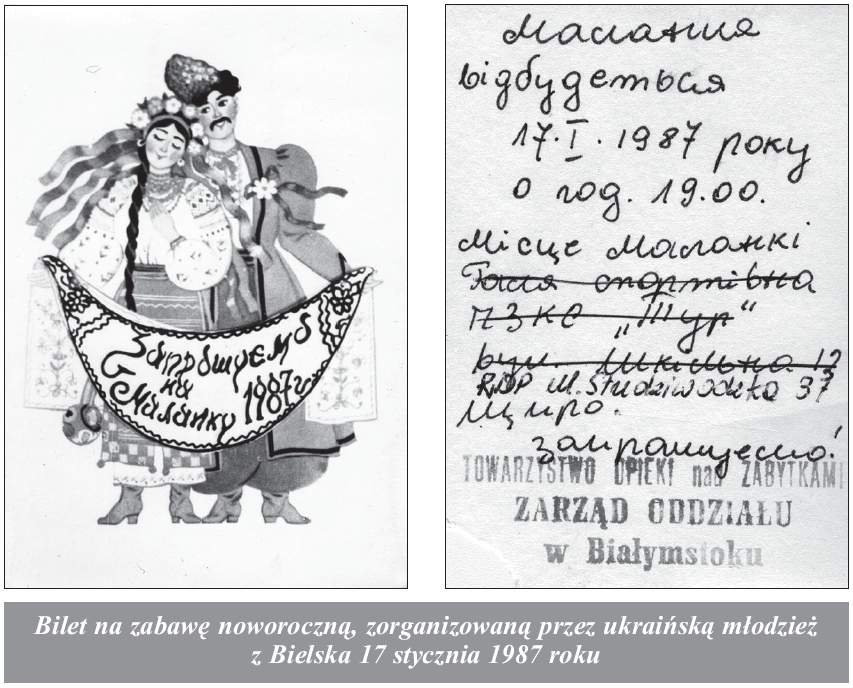 Запрашуємо
на
Маланку 1987 г
Маланка
відбудеться
17.I.1987 року
о год. 19.00.
Місце Маланки
Галя спортівна
МЗКС „Тур“
вул. Шкільна 12
RDP ul. Studziwodzka 37
Щиро.
запрашуємо!
TOWARZYSTWO OPIEKI nad ZABYTKAMI
ZARZĄD ODDZIAŁU
w Białymstoku
Bilet na zabawę noworoczną, zorganizowaną przez ukraińską młodzież
z Bielska 17 stycznia 1987 roku